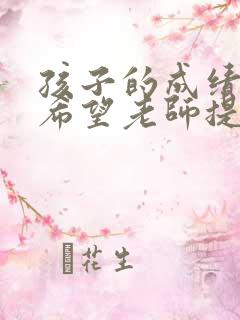 孩子的成绩
希望老師提
花生